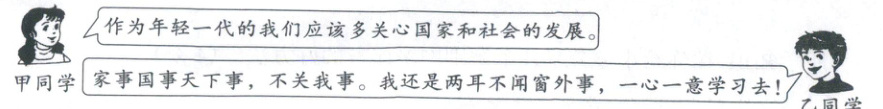 作为年轻一代的我们应该多关心国家和社会的发展。
甲同学
家事国事天下事，不关我事。我还是两耳不闻窗外事，一心一意学习去！
乙同学